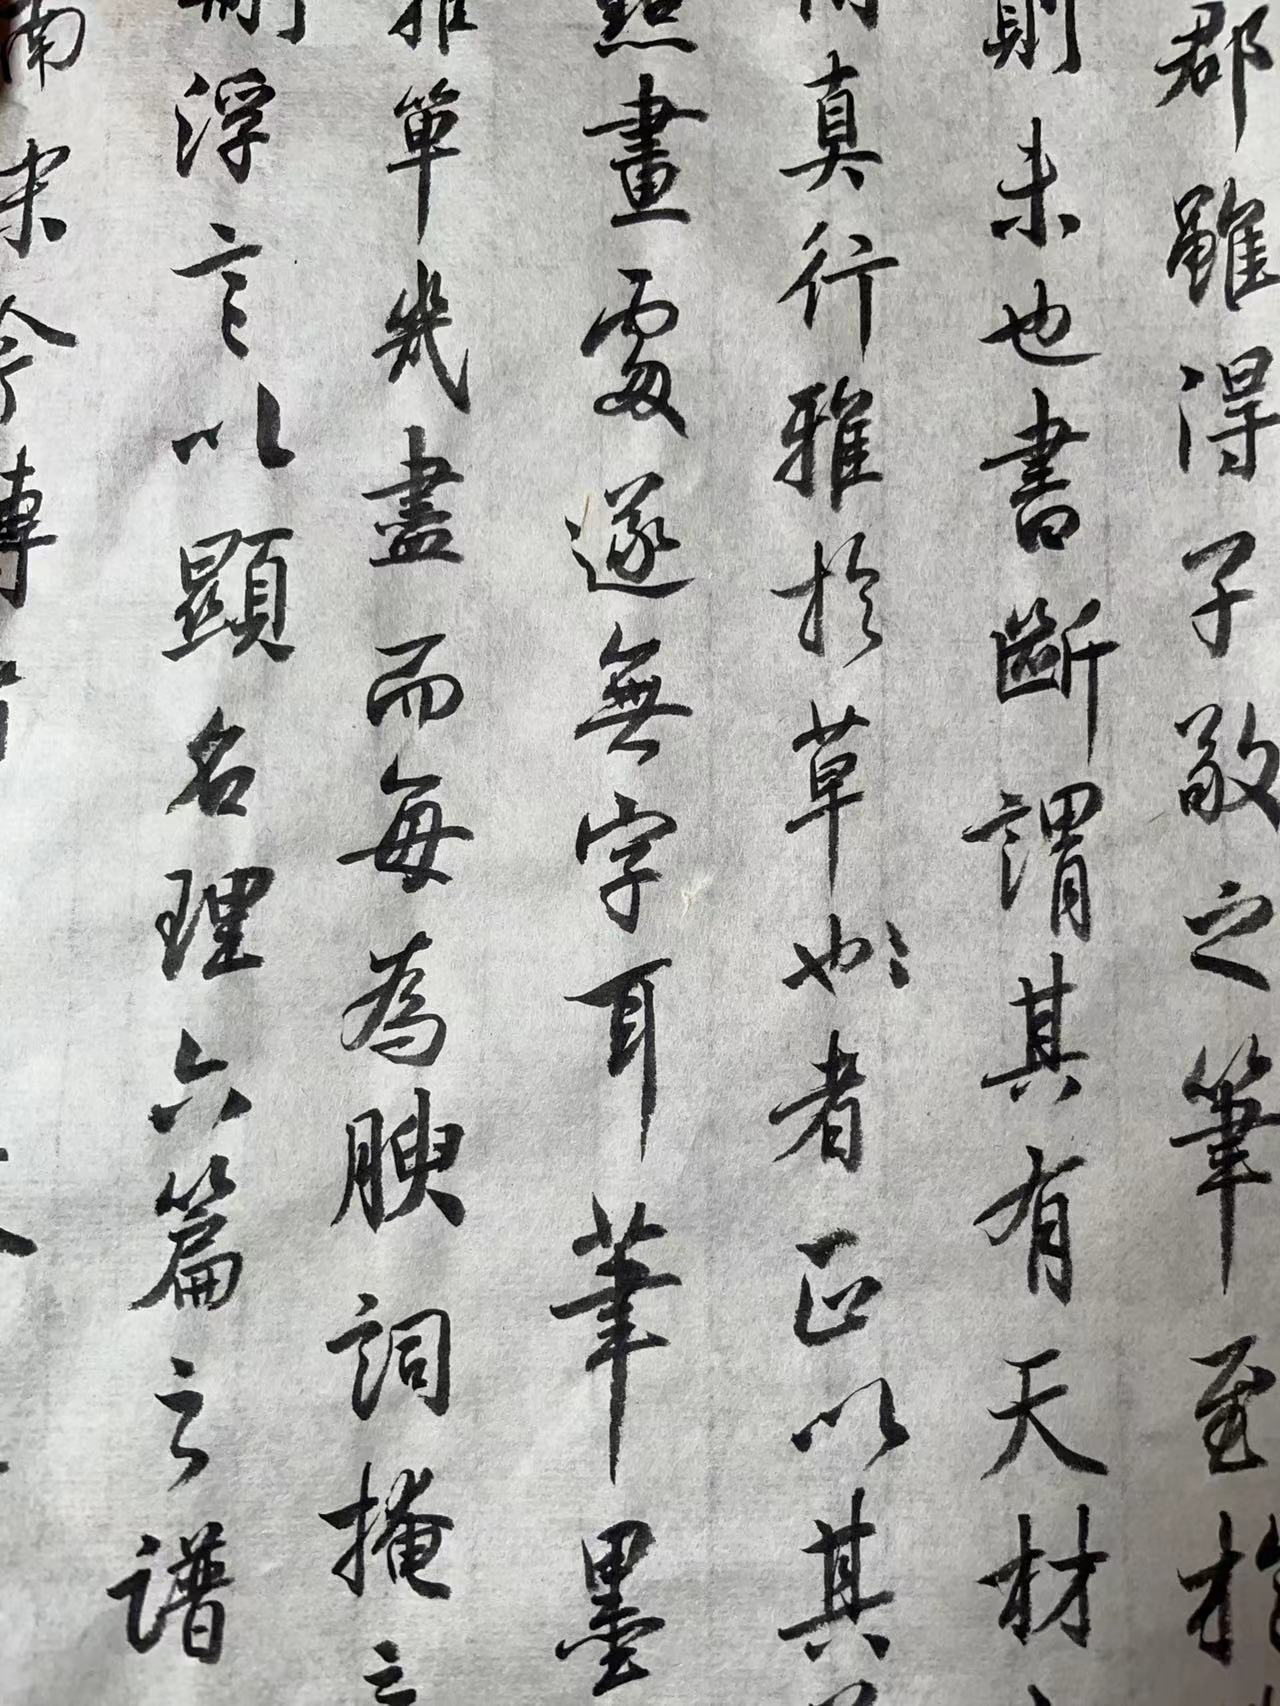 郡雖得子敬之筆至於
則未也書斷謂其有天材
真行雅於草也〻者正以其
點畫處遂無字耳筆墨
推單幾盡而每為腴詞掩之
刪浮言以顯名理六篇之譜
南宋今傳